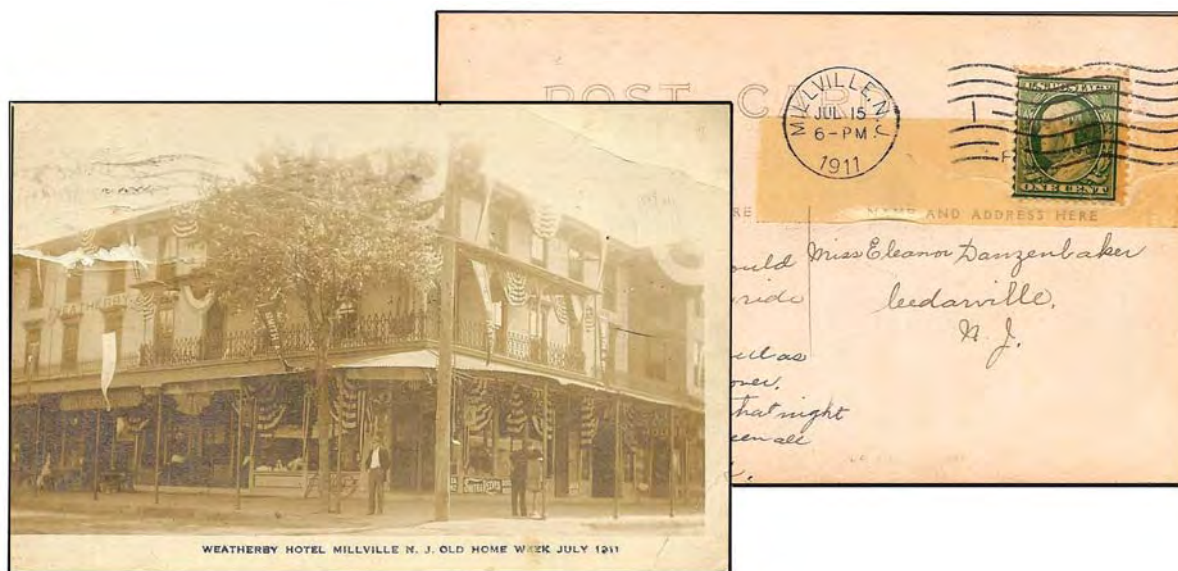 POST CARD
MILLVILLE, N.J.
JUL 15
6-PM
1911
U.S. POSTAGE
ONE CENT
NAME AND ADDRESS HERE
Miss Eleanor Danzenbaker
Cedarville,
N. J.
that night
WEATHERBY
WEATHERBY HOTEL MILLVILLE N. J. OLD HOME WEEK JULY 1911